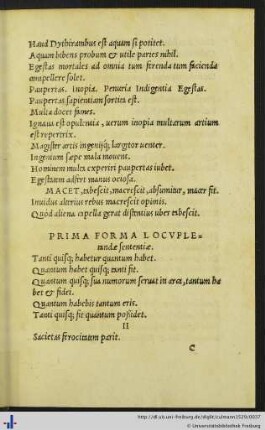 Haud Dythirambus est aquam si potitet.
Aquam bibens probum & utile paries nihil.
Egestas mortales ad omnia tum ferenda tum facienda
compellere solet.
Paupertas. Inopia. Penuria Indigentia Egestas.
Paupertas sapientiam sortita est.
Multa docet fames.
Ignaua est opulentia, uerum inopia multarum artium
est repertrix.
Magister artis ingenijq; largitor uenter.
Ingenium sæpe mala mouent.
Hominem multa experiri paupertas iubet.
Egestatem adfert manus ociosa.
MACET, tabescit, macrescit, absumitur, macer fit.
Inuidus alterius rebus macrescit opimis.
Quòd aliena capella gerat distentius uber tabescit.
PRIMA FORMA LOCVPLE=
tandæ sententiæ.
Tanti quisq; habetur quantum habet.
Quantum habet quisq; tanti fit.
Quantum quisq; sua nummorum seruat in arca, tantum ha
bet & fidei.
Quantum habebis tantum eris.
Tanti quisq; fit quantum possidet.
II
Sacietas ferocitatem parit.
C
http://dl.ub.uni-freiburg.de/diglit/culmann1529/0037
© Universitätsbibliothek Freiburg